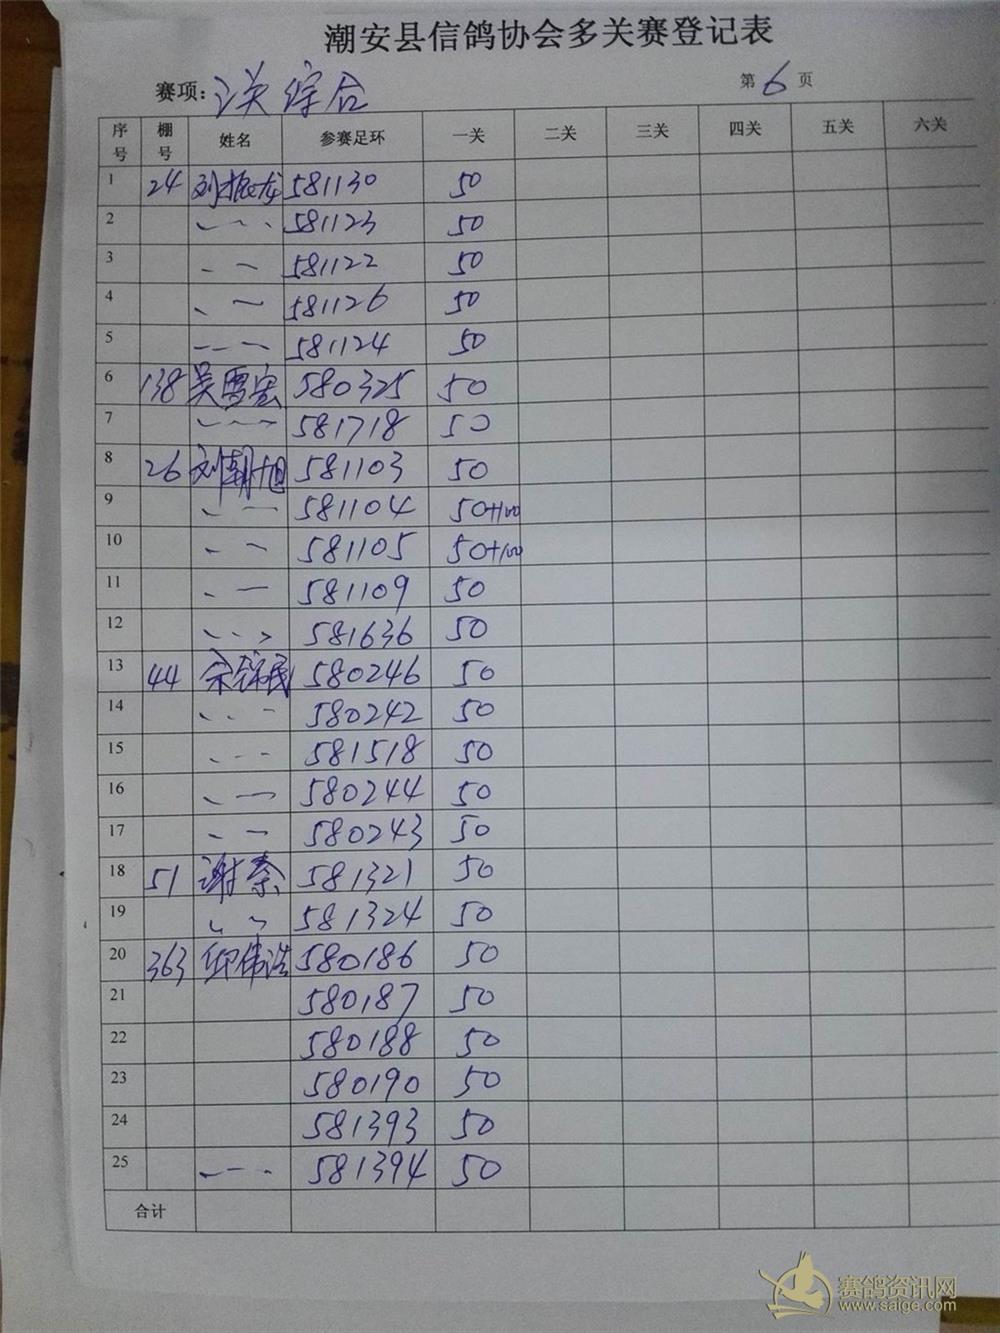 潮安县信鸽协会多关赛登记表
赛项: 关综合 第6页
序号 棚号 姓名 参赛足环 一关 二关 三关 四关 五关 六关
1 24 刘振龙 581130 50
2 581123 50
3 581122 50
4 581126 50
5 581124 50
6 138 吴雪宏 580325 50
7 581718 50
8 26 刘朝旭 581103 50
9 581104 50+100
10 581105 50+100
11 581109 50
12 581636 50
13 44 580246 50
14 580242 50
15 581518 50
16 580244 50
17 580243 50
18 51 谢泰 581321 50
19 581324 50
20 363 邱伟浩 580186 50
21 580187 50
22 580188 50
23 580190 50
24 581393 50
25 581394 50
合计
赛鸽资讯网
www.saige.com